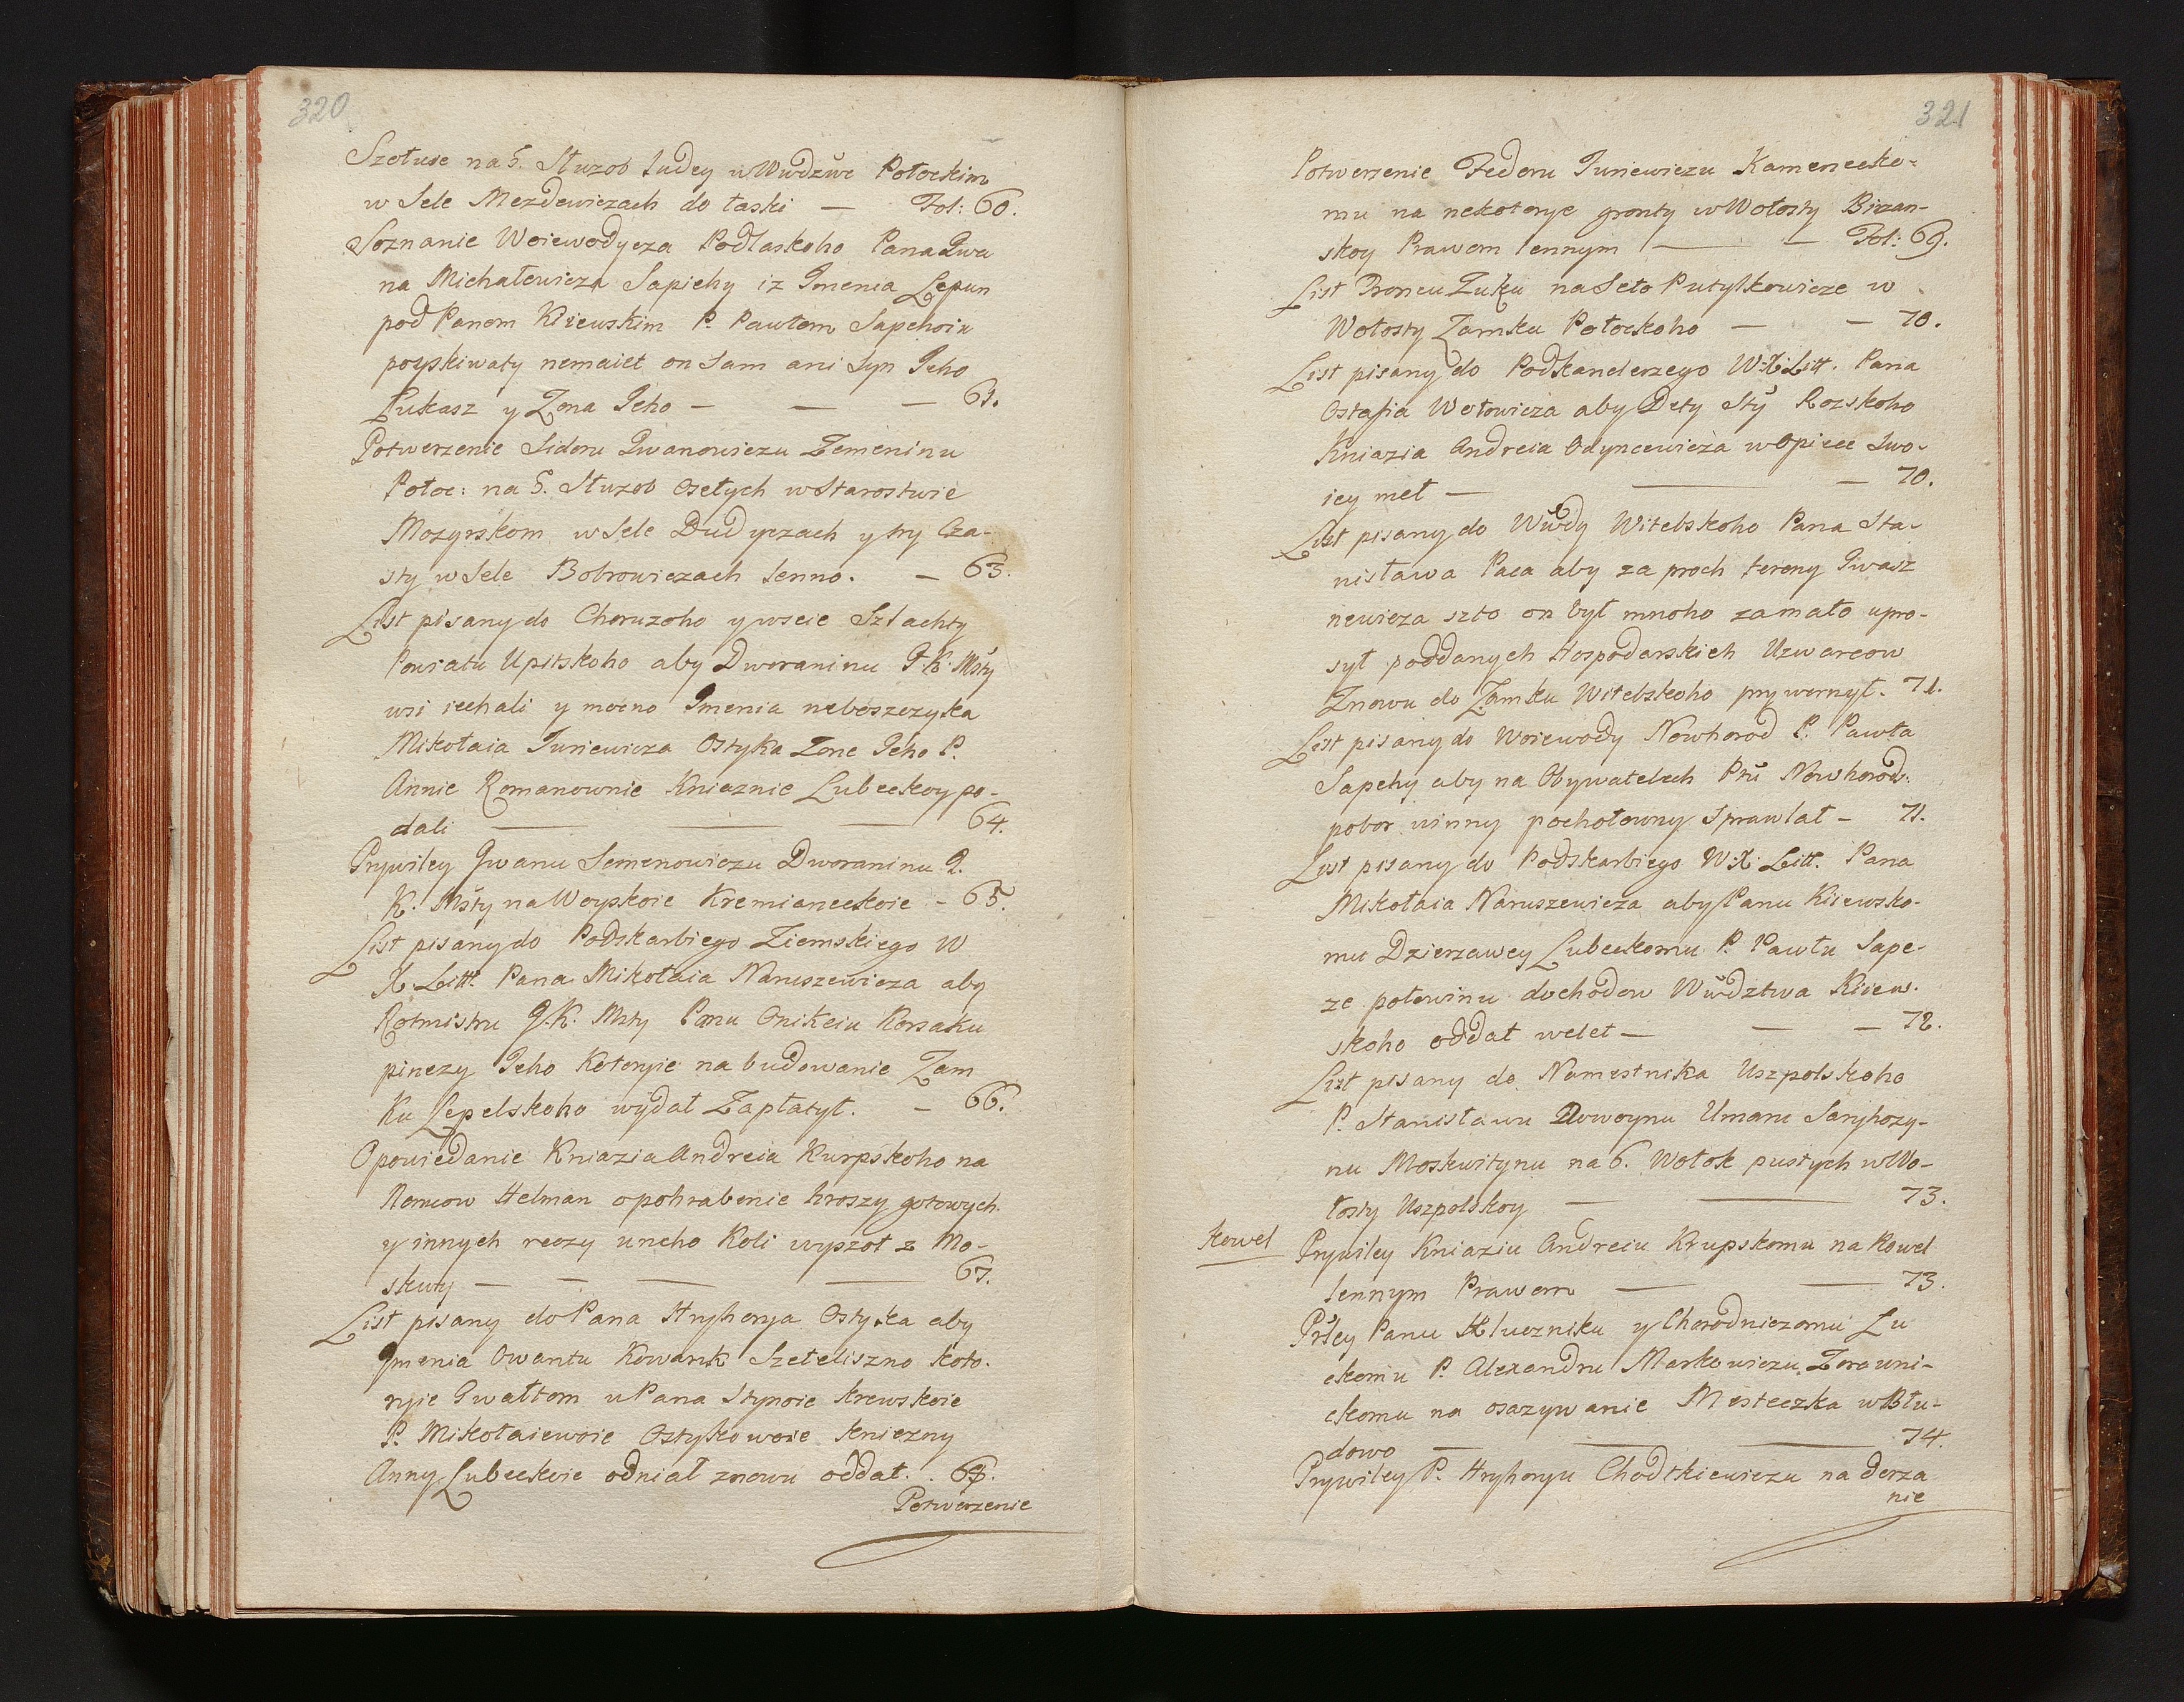 320
Szetuie na 5. Służob ludey u Wwdzwe Połockim
w Sele Mezdewiczach do łaski — Fol: 60.
Soznanie Woiewodycza Podlaskoho Pana Jwa
na Michałewicza Sapiehy iz Jmenia Lepun
pod Panom Kiiewskim P. Pawłom Sapehoiu
pozyskiwaty nemaiet on Sam ani Syn Jeho
Łukasz y Zona Jeho — — — 61.
Potwerzenie Sidoru Jwanowiczu Zemeninu
Połoc: na 5. Służob Osełych w Starostwie
Mozyrskom w Sele Dudyczach y try Cza-
sty w Sele Bobrowiczach lenno. — 63.
List pisany do Choruzoho y wseie Szlachty
Powiatu Upitskoho aby Dworaninu J K. Msty
wsi iechali y mocno Jmenia neboszczyka
Mikołaia Juriewicza Ostyka Zone Jeho P.
Annie Romanownie Kniaznie Lubeckoy po-
dali — — — 64.
Prywiley Jwanu Semenowiczu Dworaninu J.
K. Msty na Woyskoie Kremianeckoie - 65.
List pisany do Podskarbiego Ziemskiego W
X Litt. Pana Mikołaia Naruszewicza aby
Rotmistru J.K. Msty Panu Onikeiu Korsaku
pinezy Jeho Kotoryie na budowanie Zam
Ku Lepelskoho wydał Zapłatył. — 66.
Opowiedanie Kniazia Andreia Kurpskoho na
Nemcow Helman o pohrabenie hroszy gotowych
y innych reczy uneho Koli wyszoł z Mo-
skwy — — — — 67.
List pisany do Pana Hryhorya Ostyka aby
Jmenia Owantu Kowarsk Szeteliszno koto-
ryie Gwałtom u Pana Stynoie krewskoie
P. Mikołaiewoie Ostykowoie Kniezny
Anny Lubeckoie odniał znowu oddał. . 68.
Potwerzenie
321
Potwerzenie Fedoru Juriewiczu Kamenecko-
mu na nekotorye gronty w Wołosty Birzan-
skoy Prawom lennym — — Fol: 69.
List Proncu Zuku na Seło Putyłkowicze w
Wołosty Zamku Połockoho — — 70.
List pisany do Podkanclerzego W. X Litt. Pana
Ostafia Wołowicza aby Dety Sty Rozskoho
Kniazia Andreia Odyncewicza w opiece Swo-
iey meł — — — 70.
List pisany do Wwdy Witebskoho Pana Sta-
nisława Paca aby za proch Jwasz
newicza szto on był mnoho zamało upro-
sył poddanych Hospodarskich Uzwarcow
Znowu do Zamku Witebskoho prywernył. 71.
List pisany do Woiewody Nowhorod P. Pawła
Sapehy aby na Obywatelech Ptu Nowhorod:
pobor winny pochołowny Sprawlał — 71.
List pisany do Podskarbiego W. X Litt. Pana
Mikołaia Naruszewicza aby Panu Kiiewsko-
mu Dzierzawcy Lubeckomu P. Pawłu Sape-
ze połowinu dochodow Wwdztwa Kiiew-
skoho oddał welet — — — 72.
List pisany do Namestnika Uszpolskoho
P. Stanisława Dowoynu Umaru Saryhozy-
nu Moskwitynu na 6. Wołok pustych w Wo-
łosty Uszpolskoy — — 73.
Kowel
Prywiley Kniaziu Andreiu Krupskomu na Kowel
lennym Prawom — — 73.
Prley Panu Kluczniku y Chorodniczomu Lu
ckomu P. Alexandru Markowiczu Zorawni-
ckomu na osazywanie Mesteczka w Błu-
dowo — — — 74.
Prywiley P. Hryhoryu Chodtkiewiczu na derza
nie